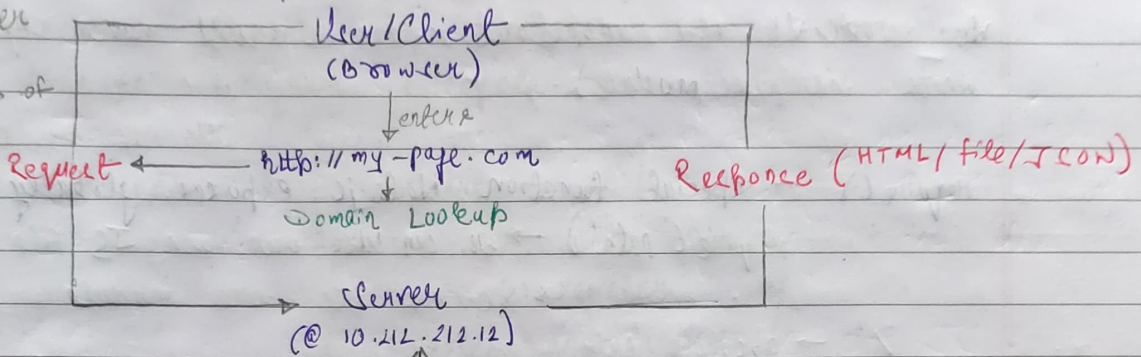 er
User/Client
(Browser)
of
enters
http://my-page.com
Request
Responce (HTML/file/JSON)
Domain Lookup
Server
(@ 10.212.212.12)